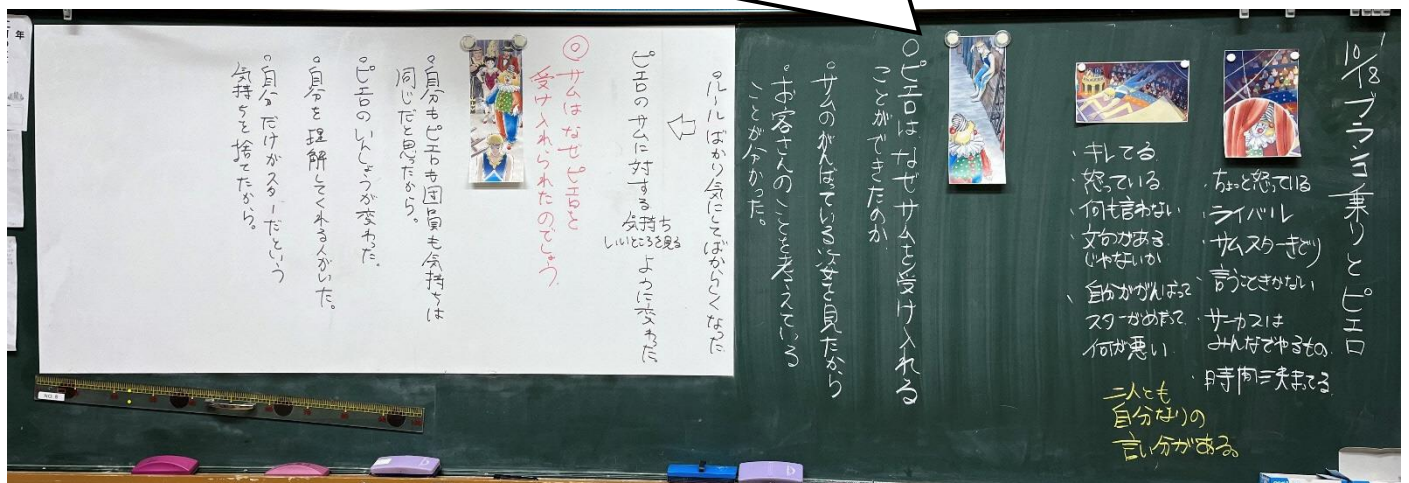 10/18 ブランコ乗りとピエロ
・ちょっと怒っている
・ライバル
・サムスターきどり
・言うこときかない
・サーカスは
みんなでやるもの
・時間決まってる
・キレてる
・怒っている
・何も言わない
・文句がある
じゃないか
・自分ががんばって
スターがめだって
何が悪い
二人とも
自分なりの
言い分がある。
○ピエロはなぜサムを受け入れる
ことができたのか
。サムのがんばっている姿を見たから
。お客さんのことを考えている
ことが分かった。
。ルールばかり気にしてばからしくなった
ピエロのサムに対する気持ち
いいところを見る
ように変わった
◎サムはなぜピエロを
受け入れられたのでしょう
。自分もピエロも団員も気持ちは
同じだと思ったから。
。ピエロのいんしょうが変わった。
。自分を理解してくれる人がいた。
。自分だけがスターだという
気持ちを捨てたから。
年
NO.8
b
b